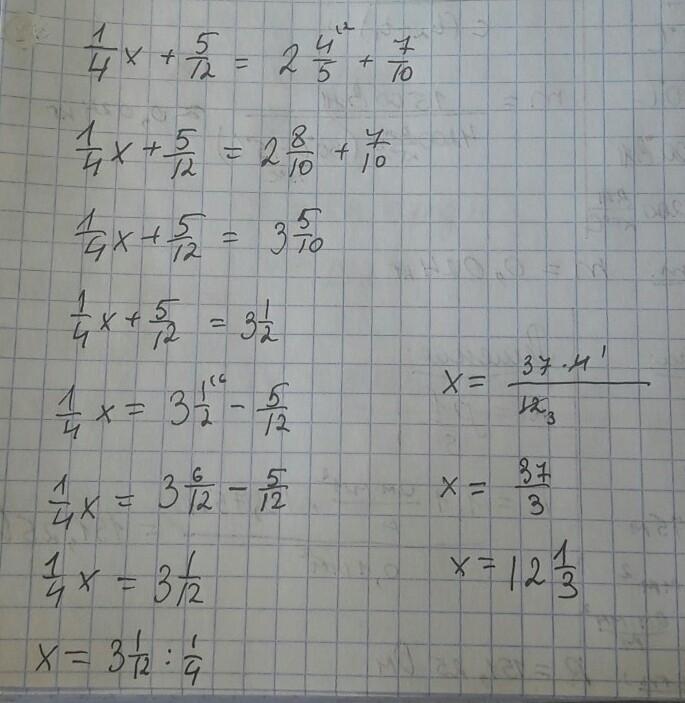 1/4 x + 5/12 = 2 4/5 ^(2 + 7/10
1/4 x + 5/12 = 2 8/10 + 7/10
1/4 x + 5/12 = 3 5/10
1/4 x + 5/12 = 3 1/2
1/4 x = 3 1/2 ^(6 - 5/12
1/4 x = 3 6/12 - 5/12
1/4 x = 3 1/12
x = 3 1/12 : 1/4
x = 37 · 4 ^1 / 12 _3
x = 37/3
x = 12 1/3